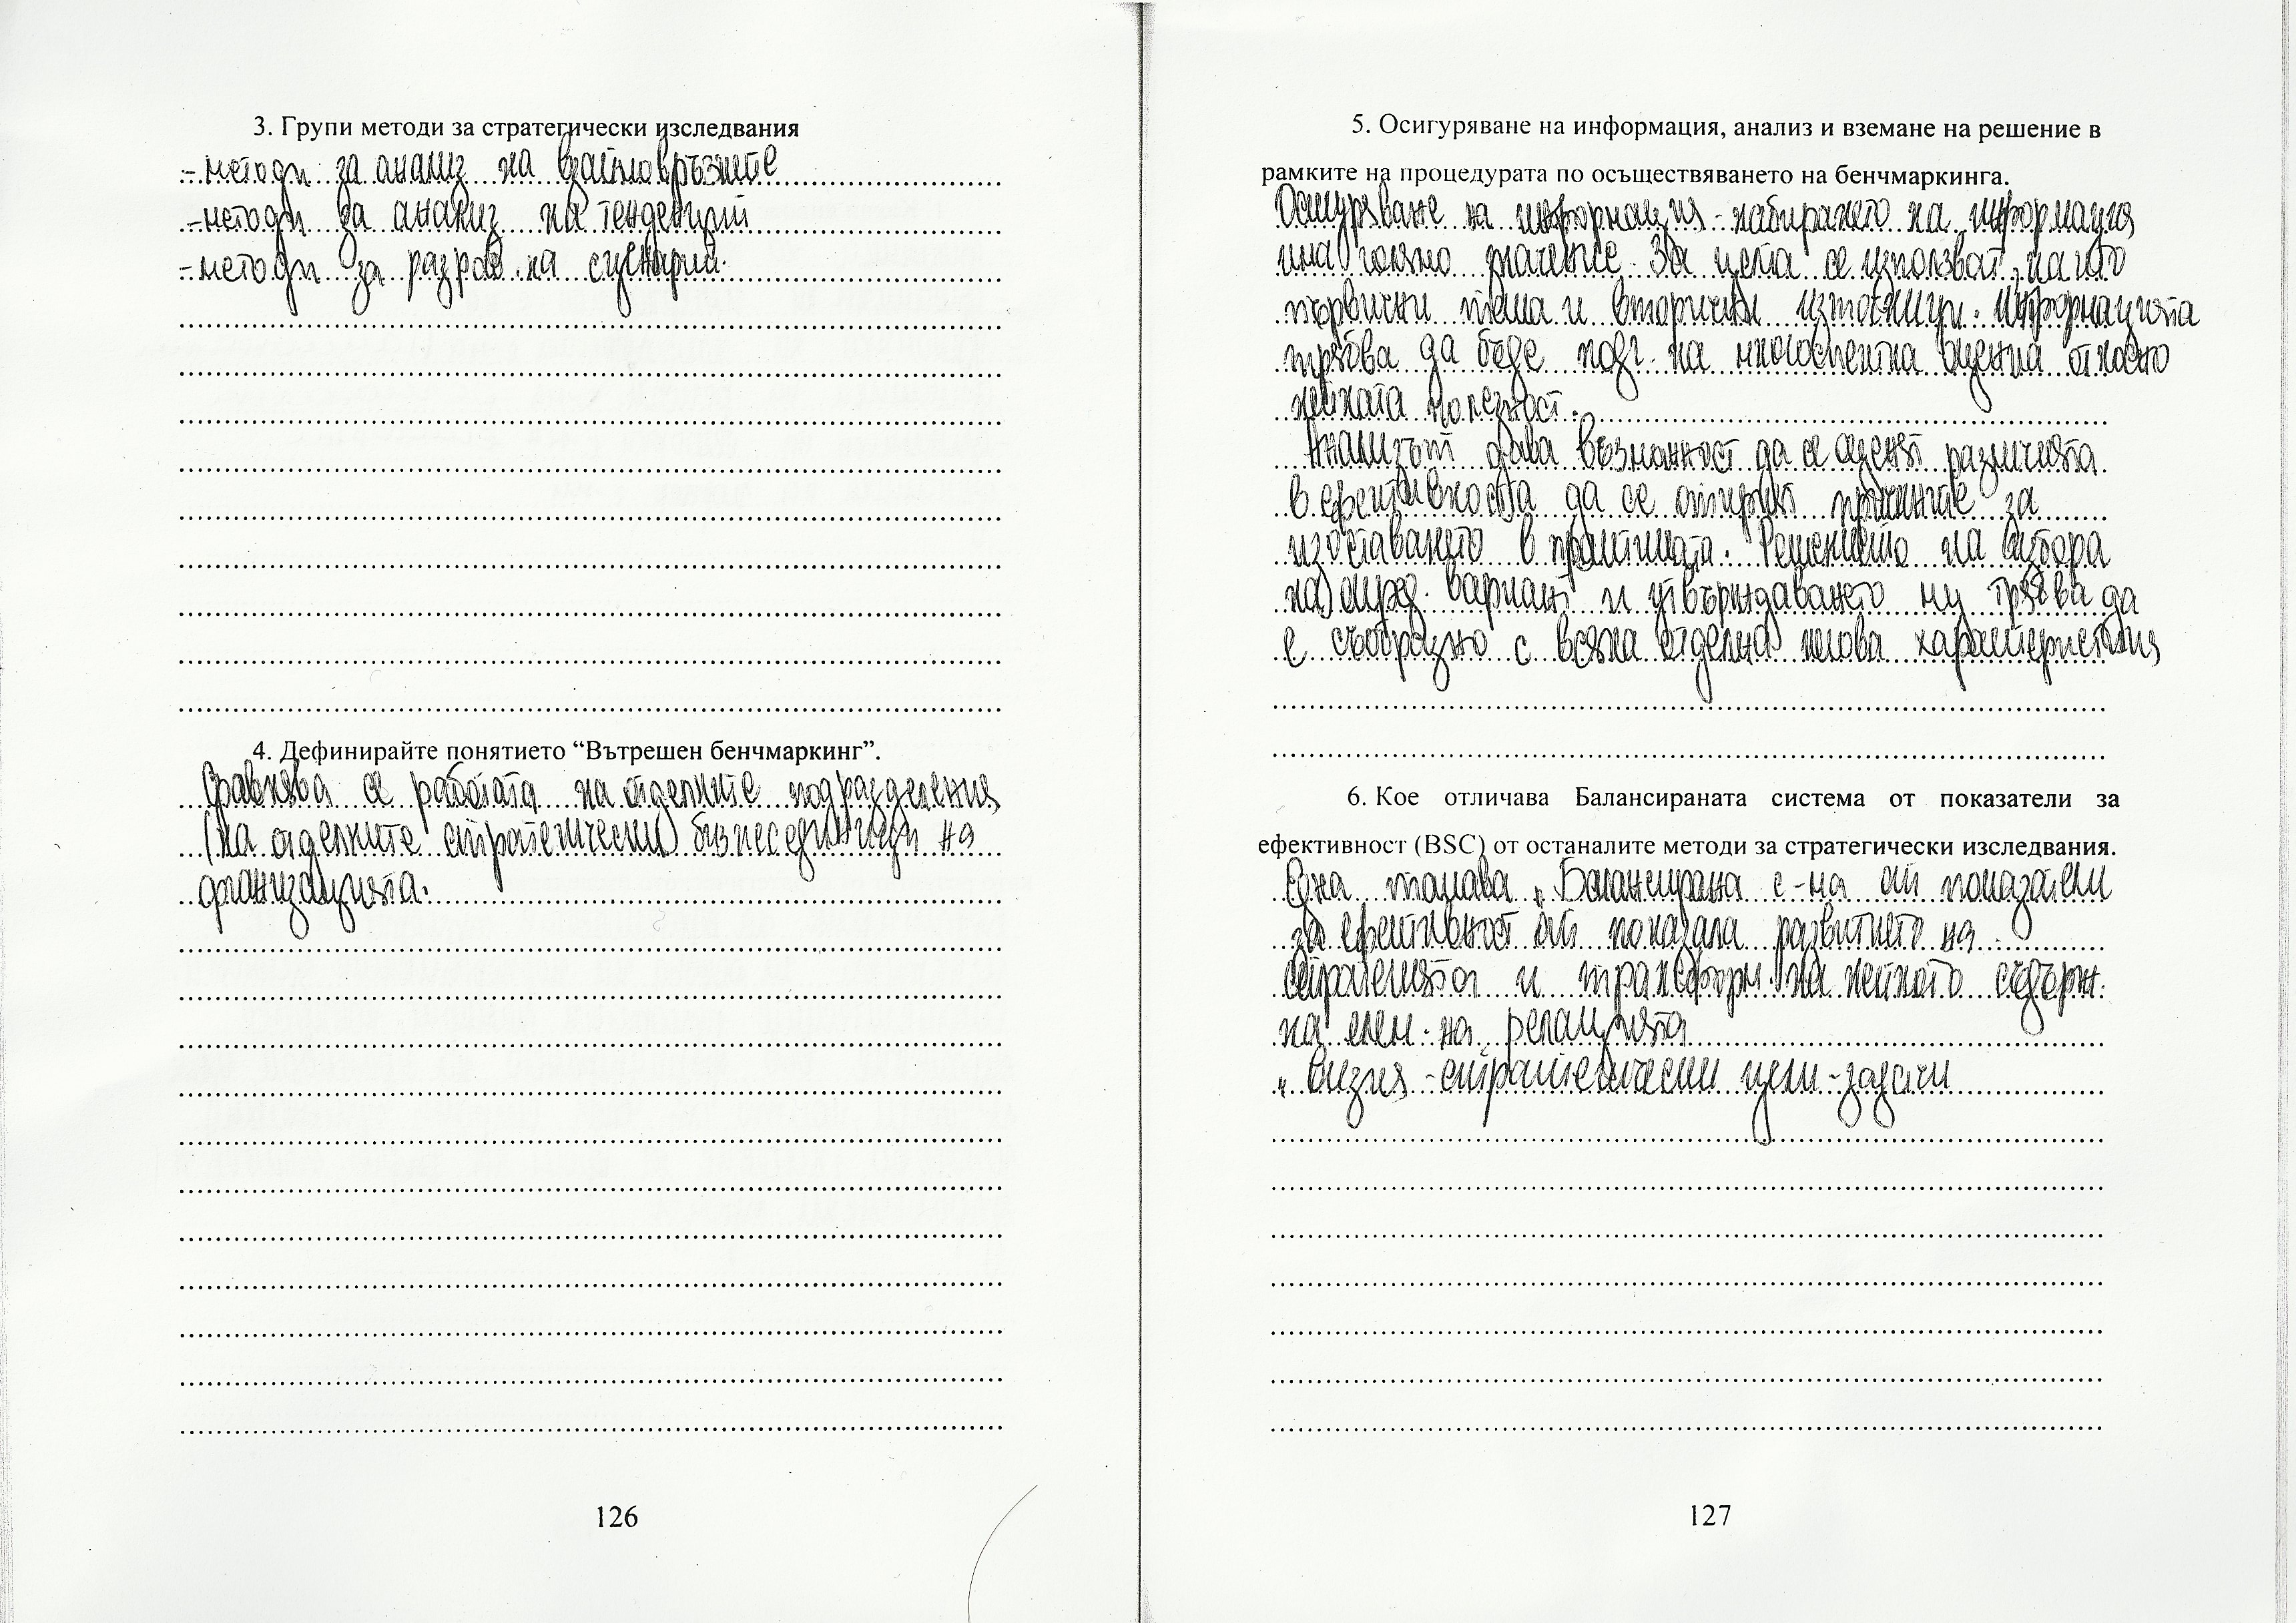 3. Групи методи за стратегически изследвания
- методи за анализ на взаимовръзките
- методи за анализ на тенденции
- методи за разраб. на сценарии.
4. Дефинирайте понятието “Вътрешен бенчмаркинг”.
Сравнява се работата на отделните подразделения
(на отделните стратегически) бизнесединици на
организацията.
126
5. Осигуряване на информация, анализ и вземане на решение в
рамките на процедурата по осъществяването на бенчмаркинга.
Осигуряване на информация - набирането на информация
има голямо значение. За целта се използват, както
първични така и вторични източници. Информацията
трябва да бъде подл. на многоаспектна оценка относно
нейната полезност.
Анализът дава възможност да се оценят различията
в ефективността да се открият причините за
изоставането в практиката. Решението на избора
на опред. вариант и утвърждаването му трябва да
е съобразно с всяка отделна негова характеристика
6. Кое отличава Балансираната система от показатели за
ефективност (BSC) от останалите методи за стратегически изследвания.
Една такава „Балансирана с-ма от показатели
за ефективност би показала развитието на
стратегията и трансформ. на нейното съдърж.
на елем. на релацията
„Визия - стратегически цели - задачи
127